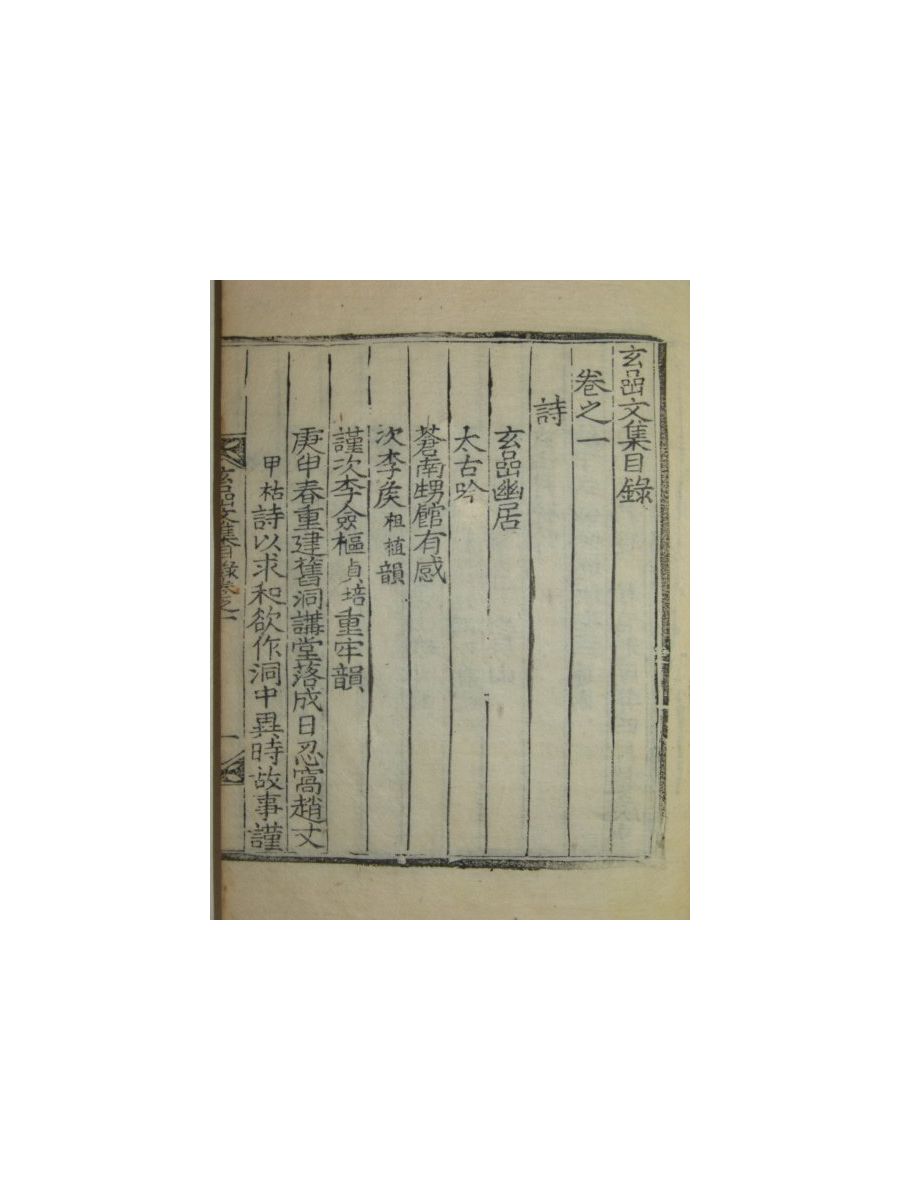 玄嵒文集目錄
卷之一
詩
玄嵒幽居
太古吟
蒼南甥館有感
次李矦相植韻
謹次李僉樞貞培重牢韻
庚申春重建舊洞講堂落成日忍窩趙丈
甲祜詩以求和欲作洞中異時故事謹
玄嵒文集目錄卷之一
一